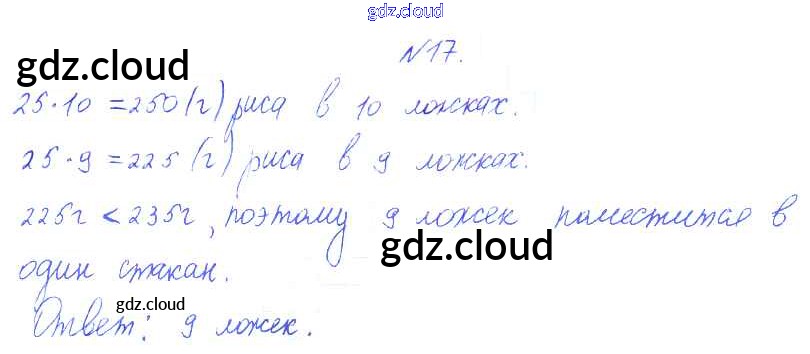 gdz.cloud
N17.
gdz.cloud
25·10 = 250 (г) риса в 10 ложках.
25·9 = 225 (г) риса в 9 ложках.
225г < 235г, поэтому 9 ложек поместится в
gdz.cloud
один стакан.
gdz.cloud
Ответ: 9 ложек.